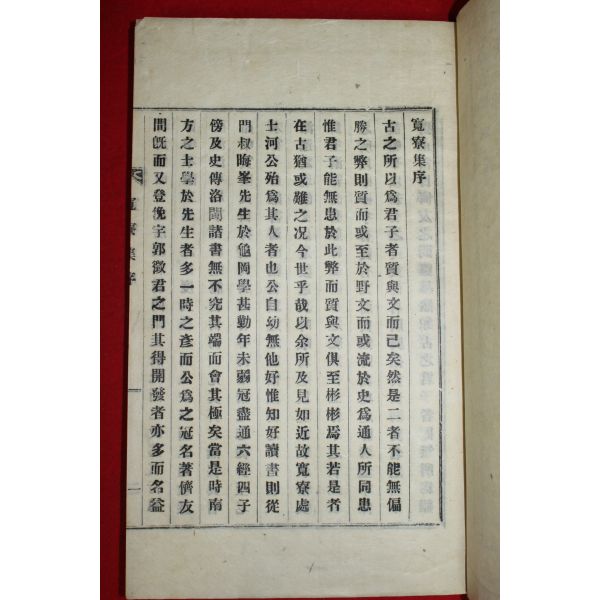 寬寮集序
古之所以爲君子者質與文而已矣然是二者不能無偏
勝之弊則質而或至於野文而或流於史爲通人所同患
惟君子能無患於此弊而質與文俱至彬彬焉其若是者
在古猶或難之况今世乎哉以余所及見如近故寬寮處
士河公殆爲其人者也公自幼無他好惟知好讀書則從
門叔晦峯先生於龜岡學甚勤年未弱冠盡通六經四子
傍及史傳洛閩諸書無不究其端而會其極矣當是時南
方之士學於先生者多一時之彥而公爲之冠名著儕友
間旣而又登俛宇郭徵君之門其得開發者亦多而名益
寬寮集序
一